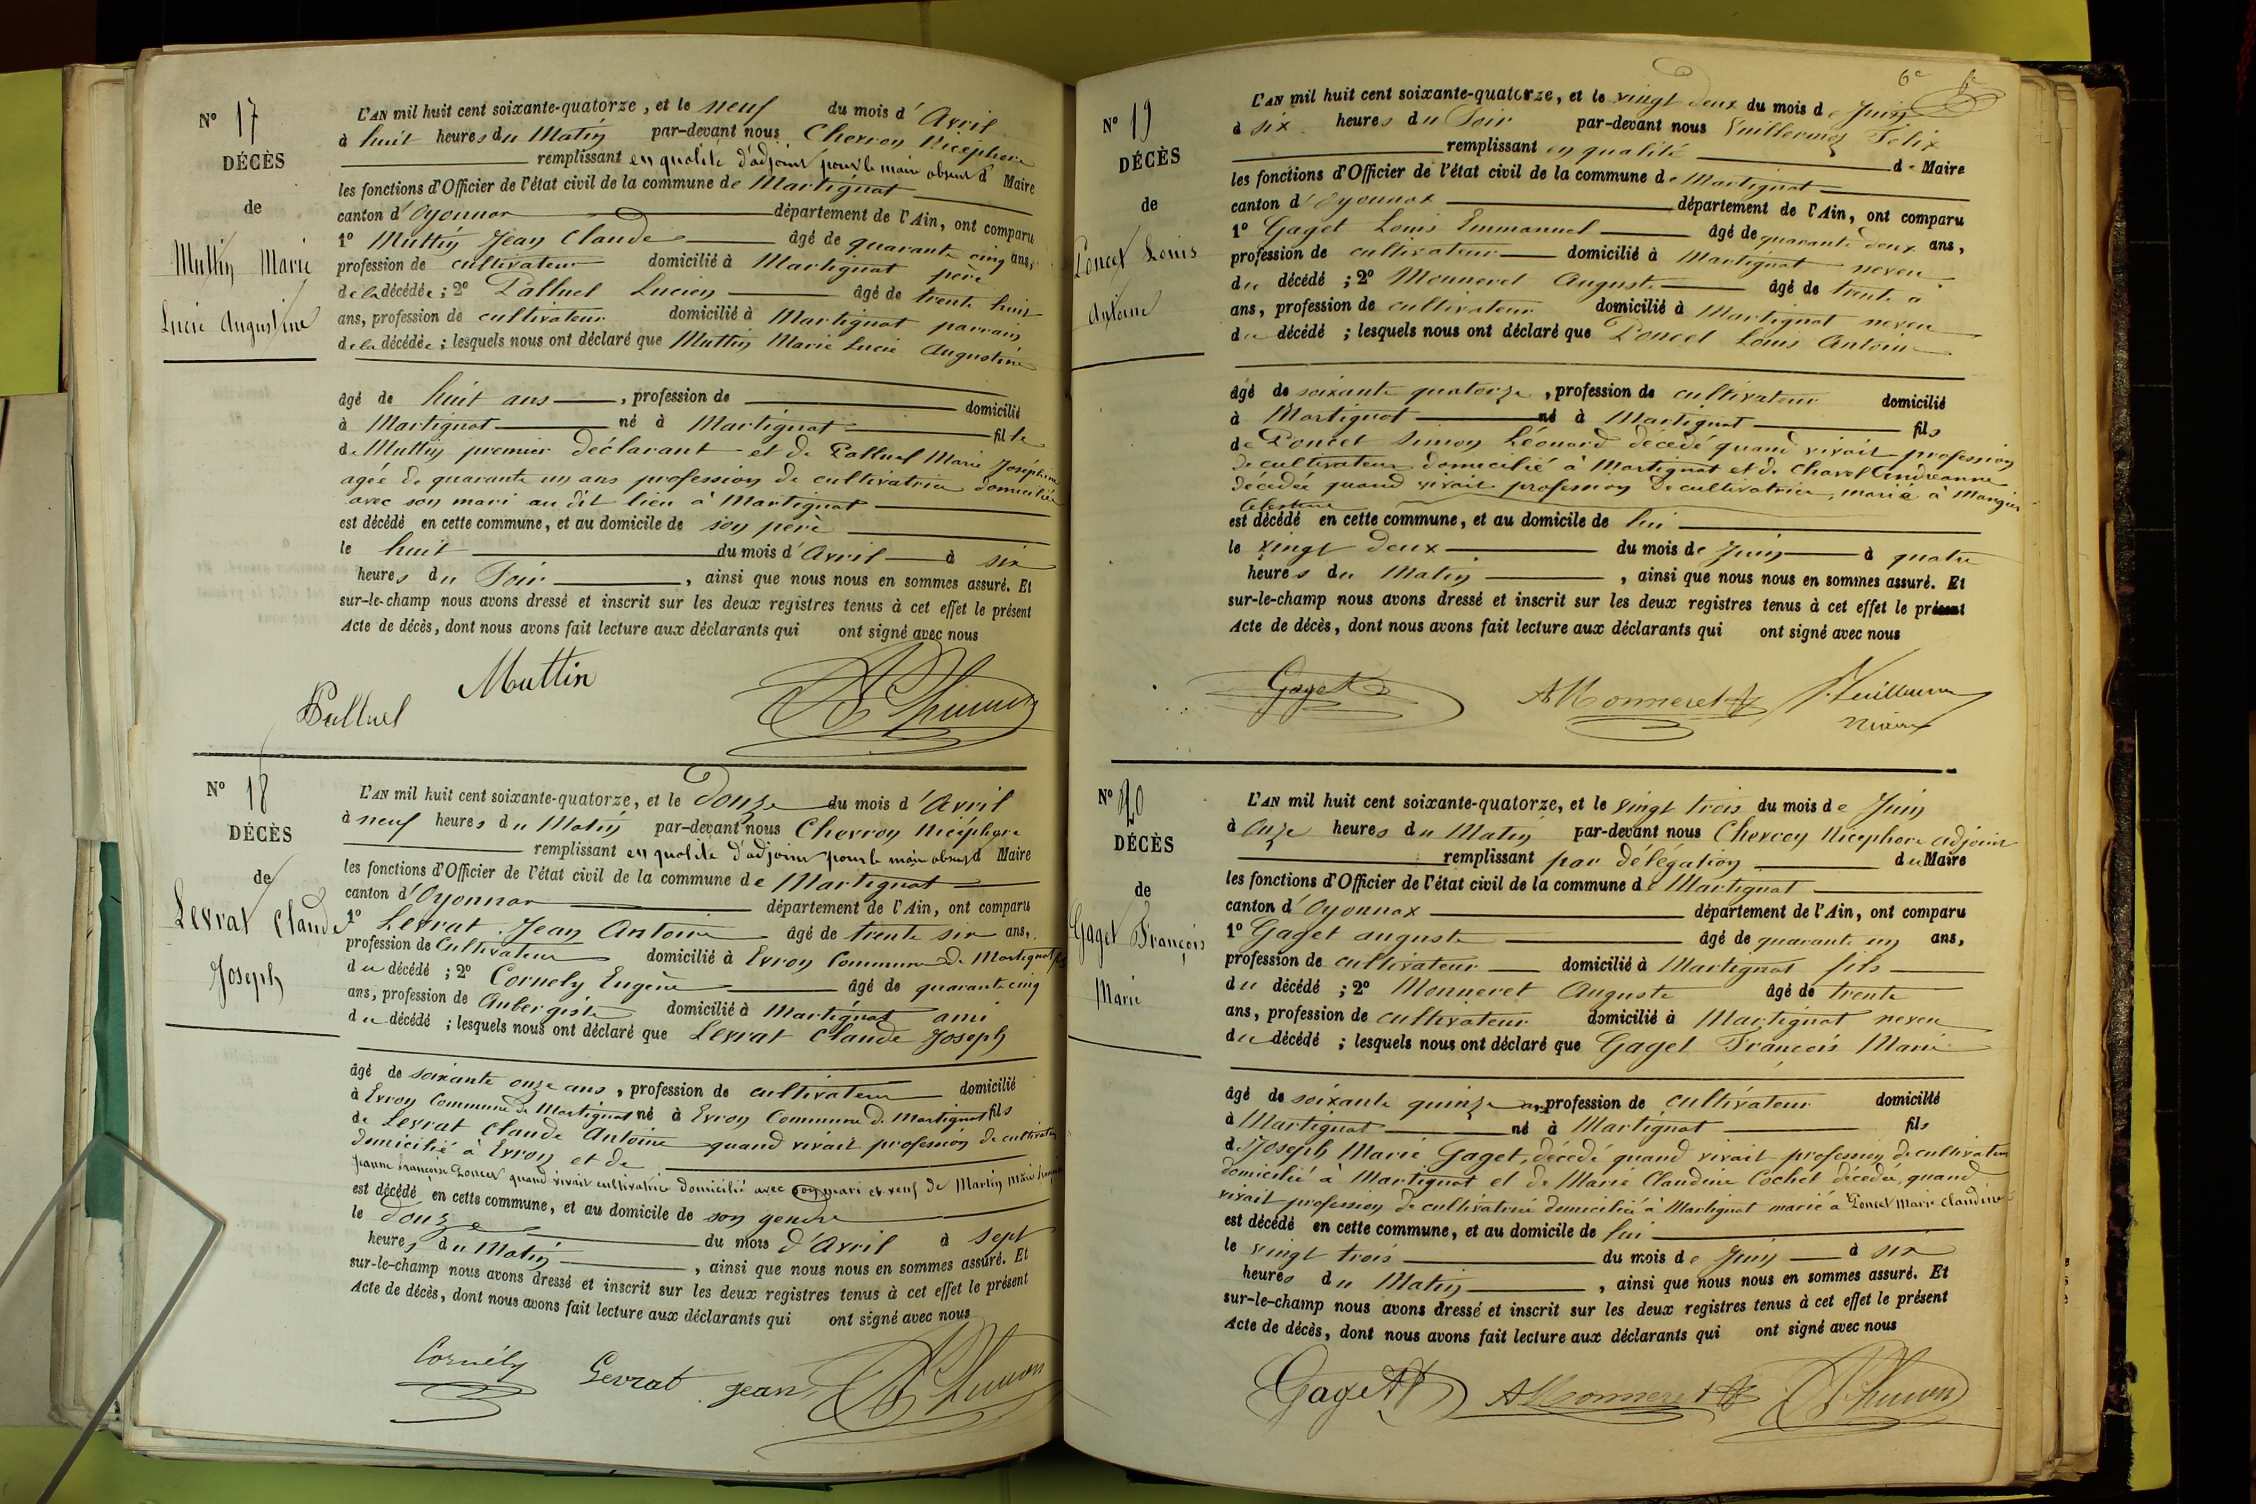 N° 17
DÉCÈS
de
Muttin Marie
Lucie Augustine
L'AN mil huit cent soixante-quatorze, et le neuf du mois d'Avril
à huit heures du Matin par-devant nous Chevron Nicéphore
remplissant en qualité d'adjoint pour le maire absent d Maire
les fonctions d'Officier de l'état civil de la commune de Martignat
canton d'Oyonnax département de l'Ain, ont comparu
1° Muttin Jean Claude âgé de quarante cinq ans,
profession de cultivateur domicilié à Martignat père
de la décédée ; 2° Palluel Lucien âgé de trente huit
ans, profession de cultivateur domicilié à Martignat parrain
de la décédée ; lesquels nous ont déclaré que Muttin Marie Lucie Augustine
âgé de huit ans, profession de domicilié
à Martignat né à Martignat fille
de Muttin premier déclarant et de Palluel Marie Joséphine
agée de quarante un ans profession de cultivatrice domiciliée
avec son mari au dit lieu à Martignat
est décédé en cette commune, et au domicile de son père
le huit du mois d'Avril à six
heures du Soir, ainsi que nous nous en sommes assuré. Et
sur-le-champ nous avons dressé et inscrit sur les deux registres tenus à cet effet le présent
Acte de décès, dont nous avons fait lecture aux déclarants qui ont signé avec nous
Muttin
Palluel
N° 18
DÉCÈS
de
Levrat Claude
Joseph
L'AN mil huit cent soixante-quatorze, et le Douze du mois d'Avril
à neuf heures du Matin par-devant nous Chevron Nicéphore
remplissant en qualité d'adjoint pour le maire absent d Maire
les fonctions d'Officier de l'état civil de la commune de Martignat
canton d'Oyonnax département de l'Ain, ont comparu
1° Levrat Jean Antoine âgé de trente six ans,
profession de Cultivateur domicilié à Evron Commune de Martignat fils
du décédé ; 2° Cornely Eugène âgé de quarante cinq
ans, profession de Aubergiste domicilié à Martignat ami
du décédé ; lesquels nous ont déclaré que Levrat Claude Joseph
âgé de soixante onze ans, profession de cultivateur domicilié
à Evron Commune de Martignat né à Evron Commune de Martignat fils
de Levrat Claude Antoine quand vivait profession de cultivateur
domicilié à Evron et de
Jeanne Françoise Poncet quand vivait cultivatrice domicilié avec son mari et veuf de Martin Marie
est décédé en cette commune, et au domicile de son gendre
le douze du mois d'Avril à sept
heures du Matin, ainsi que nous nous en sommes assuré. Et
sur-le-champ nous avons dressé et inscrit sur les deux registres tenus à cet effet le présent
Acte de décès, dont nous avons fait lecture aux déclarants qui ont signé avec nous
Cornély Levrat jean
6e
N° 19
DÉCÈS
de
Poncet Louis
Antoine
L'AN mil huit cent soixante-quatorze, et le vingt deux du mois de Juin
à six heures du Soir par-devant nous Vuillermoz Félix
remplissant en qualité de Maire
les fonctions d'Officier de l'état civil de la commune de Martignat
canton d'Oyonnax département de l'Ain, ont comparu
1° Gaget Louis Emmanuel âgé de quarante deux ans,
profession de cultivateur domicilié à Martignat neveu
du décédé ; 2° Monneret Auguste âgé de trente
ans, profession de cultivateur domicilié à Martignat neveu
du décédé ; lesquels nous ont déclaré que Poncet Louis Antoine
âgé de soixante quatorze, profession de cultivateur domicilié
à Martignat né à Martignat fils
de Poncet Simon Léonard décédé quand vivait profession
de cultivateur domicilié à Martignat et de Chavel Andréanne
décédée quand vivait profession de cultivatrice, marié à Mangin
Célestine
est décédé en cette commune, et au domicile de lui
le vingt deux du mois de Juin à quatre
heures du Matin, ainsi que nous nous en sommes assuré. Et
sur-le-champ nous avons dressé et inscrit sur les deux registres tenus à cet effet le présent
Acte de décès, dont nous avons fait lecture aux déclarants qui ont signé avec nous
Gaget A Monneret
N° 20
DÉCÈS
de
Gaget François
Marie
L'AN mil huit cent soixante-quatorze, et le vingt trois du mois de Juin
à onze heures du Matin par-devant nous Chevron Nicéphore adjoint
remplissant par délégation du Maire
les fonctions d'Officier de l'état civil de la commune de Martignat
canton d'Oyonnax département de l'Ain, ont comparu
1° Gaget auguste âgé de quarante un ans,
profession de cultivateur domicilié à Martignat fils
du décédé ; 2° Monneret Auguste âgé de trente
ans, profession de cultivateur domicilié à Martignat neveu
du décédé ; lesquels nous ont déclaré que Gaget François Marie
âgé de soixante quinze ans, profession de cultivateur domicilié
à Martignat né à Martignat fils
de Joseph Marie Gaget, décédé quand vivait profession de cultivateur
domicilié à Martignat et de Marie Claudine Cochet décédée, quand
vivait profession de cultivatrice domiciliée à Martignat marié à Poncet Marie Claudine
est décédé en cette commune, et au domicile de lui
le vingt trois du mois de Juin à six
heures du Matin, ainsi que nous nous en sommes assuré. Et
sur-le-champ nous avons dressé et inscrit sur les deux registres tenus à cet effet le présent
Acte de décès, dont nous avons fait lecture aux déclarants qui ont signé avec nous
Gaget A Monneret